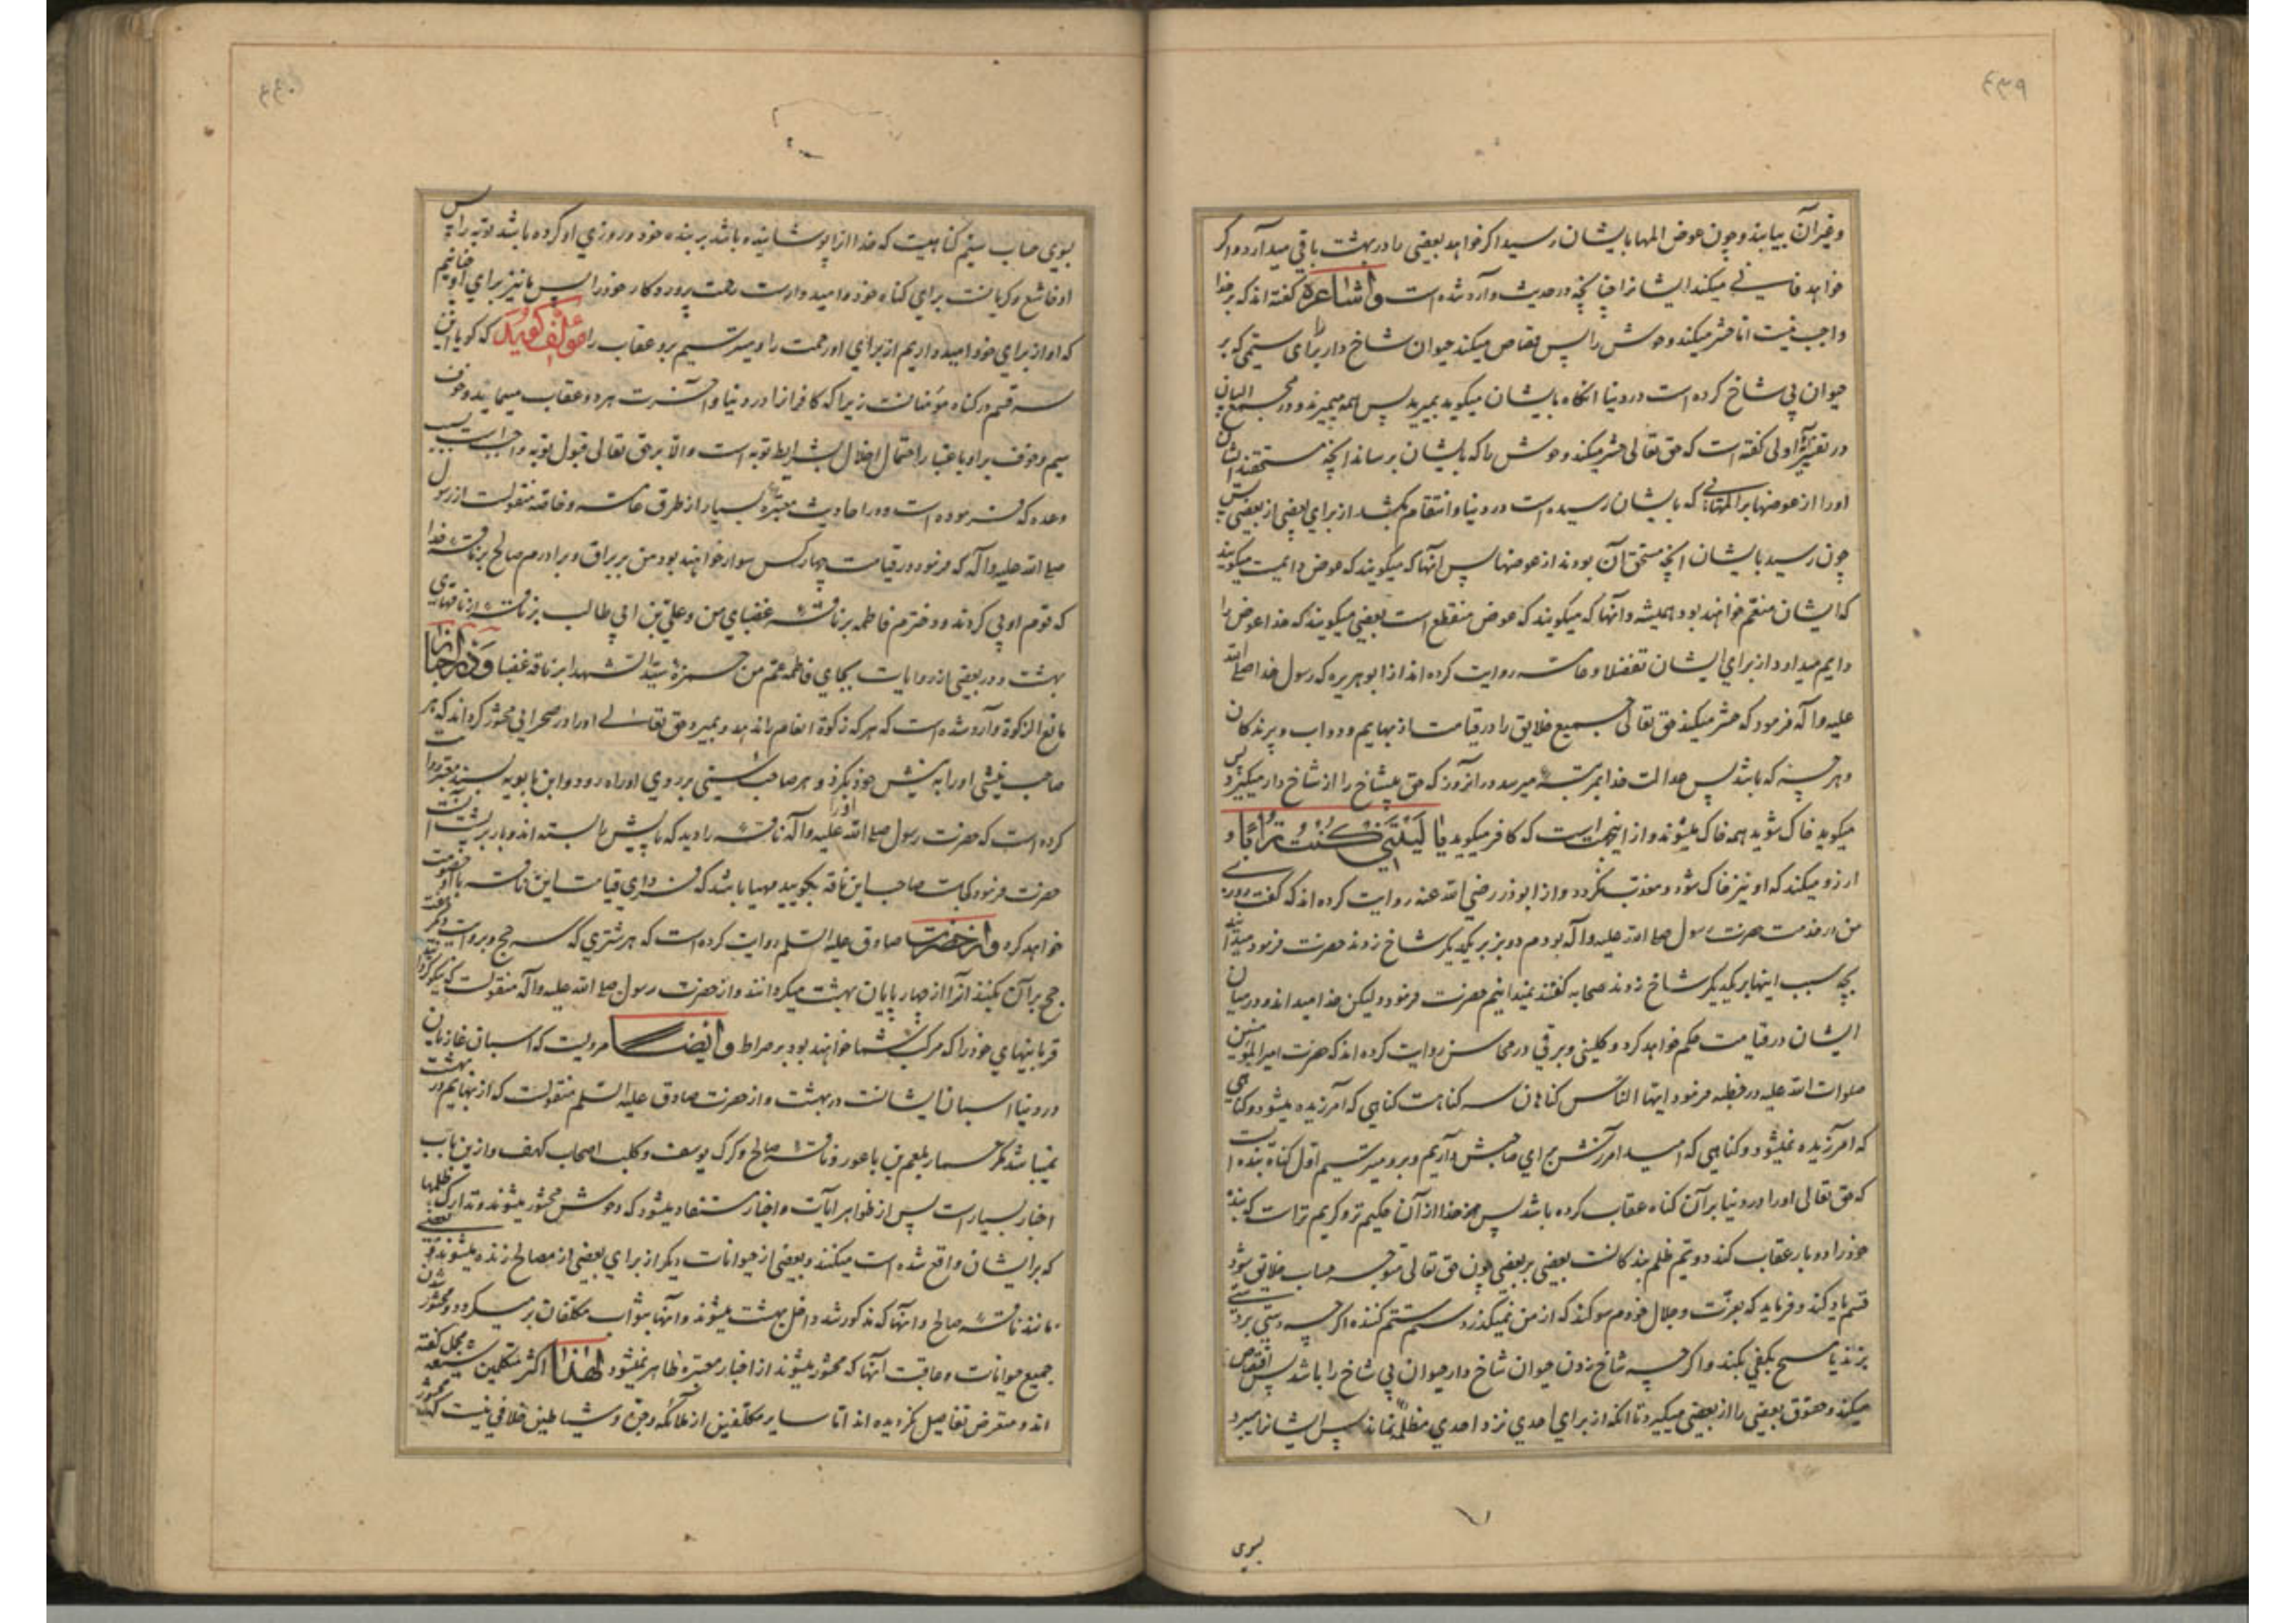 ٤٣٩
و غیر آن بیابند و چون عوض المها بایشان رسید اگر خواهد بعضی را در بهشت باقی میدارد و اگر
خواهد فانی میکند ایشانرا چنانچه در حدیث وارد شده است و اشاعره گفته اند که بر خدا
واجب نیست اما حشر میکند وحوش را پس قصاص میکند حیوان شاخ دار را برای ستمی که بر
حیوان بی شاخ کرده است در دنیا انگاه بایشان میگوید بمیرید پس همه میمیرند و در مجمع البیان
در تفسیر آیه اولی گفته است که حق تعالی حشر میکند وحوش را که بایشان برساند انچه مستحقند ایشان
اورا از عوضها بر المهائی که بایشان رسیده است در دنیا و انتقام بکشد از برای بعضی از بعضی پس
چون رسید بایشان انچه مستحق آن بودند از عوضها پس آنها که میگویند که عوض دایمیست میگویند
که ایشان متنعم خواهند بود همیشه و آنها که میگویند که عوض منقطع است بعضی میگویند که خدا عوض را
دایم میدارد از برای ایشان تفضلا و عامه روایت کرده اند از ابو هریره که رسول خدا صلی الله
علیه و آله فرمود که حشر میکند حق تعالی جمیع خلایق را در قیامت از بهایم و دواب و پرندگان
و هر چه که باشد پس عدالت خدا بمرتبه میرسد در انروز که حق بیشاخ را از شاخ دار میگیرد پس
میگوید خاک شوید همه خاک میشوند و از اینجهتست که کافر میگوید یا لَیْتَنی کُنْتُ تُراباً و
ارزو میکند که او نیز خاک شود و معذب نگردد و از ابوذر رضی الله عنه روایت کرده اند که گفت روزی
من در خدمت حضرت رسول صلی الله علیه و آله بودم دو بز بر یکدیگر شاخ زدند حضرت فرمود میدانید
بچه سبب اینها بر یکدیگر شاخ زدند صحابه گفتند نمیدانیم حضرت فرمود ولیکن خدا میداند و در میان
ایشان در قیامت حکم خواهد کرد و کلینی و برقی در محاسن روایت کرده اند که حضرت امیر المؤمنین
صلوات الله علیه در خطبه فرمود ایها الناس گناهان سه گناهست گناهی که آمرزیده میشود و گناهی
که آمرزیده نمیشود و گناهی که امید آمرزش برای صاحبش داریم و بر او میترسیم اول گناه بنده ایست
که حق تعالی اورا در دنیا بر آن گناه عقاب کرده باشد پس خدا از آن حکیم تر و کریم تر است که بنده
خود را دو بار عقاب کند دویم ظلم بندگانست بعضی بر بعضی چون حق تعالی متوجه حساب خلایق شود
قسم یاد کند و فرماید که بعزت و جلال خودم سوگند که از من نمیگذرد ستم ستم کننده اگر چه دستی بر دستی
بزند یا مسح بکفی بکند و اگر چه شاخ زدن حیوان شاخ دار حیوان بی شاخ را باشد پس اقتصاص
میکند و حقوق بعضی را از بعضی میگیرد تا انکه از برای احدی نزد احدی مظلمه نماند پس ایشانرا میبرد
بسوی
٤٤٠
بسوی حساب سیم گناهیست که خدا انرا پوشانیده باشد بر بنده خود و روزی او کرده باشد توبه را پس
او خاشع و گریانست برای گناه خود و امیدوارست رحمت پروردگار خود را پس ما نیز برای او چنانیم
که او از برای خود امیدواریم از برای او رحمت را و میترسیم بر او عقاب را مؤلف گوید که گویا این
سه قسم در گناه مؤمنانست زیرا که کافرانرا در دنیا و آخرت هر دو عقاب مینماید و خوف
سیم و خوف بر او باعتبار احتمال اخلال بشرایط توبه است و الا بر حق تعالی قبول توبه واجب است بسبب
وعده که فرموده است و در احادیث معتبره بسیار از طرق عامه و خاصه منقولست از رسول
صلی الله علیه و آله که فرمود در قیامت چهار کس سوار خواهند بود من بر براق و برادرم صالح بر ناقه خدا
که قوم او پی کردند و دخترم فاطمه بر ناقه غضبای من و علی بن ابی طالب بر ناقه از ناقهای
بهشت و در بعضی از روایات بجای فاطمه عمم من حمزه سید الشهدا بر ناقه غضبا و در اخبار
مانع الزکوة وارد شده است که هر که زکوة انعام را ندهد و بمیرد حق تعالی اورا در صحرائی محشور گرداند که هر
صاحب نیشی اورا به نیش خود بگزد و هر صاحب سمی بر روی او راه رود و ابن بابویه بسند معتبر روایت
کرده است که حضرت رسول صلی الله علیه و آله ناقه را دید که پایش را بسته اند و بار بر پشت اوست
حضرت فرمود کجاست صاحب این ناقه بگویید مهیا باشد که فردای قیامت این ناقه با او خصومت
خواهد کرد و از حضرت صادق علیه السلم روایت کرده است که هر شتری که سه حج و بروایت دیگر هفت
حج بر آن بکنند انرا از چهار پایان بهشت میگردانند و از حضرت رسول صلی الله علیه و آله منقولست که نیکو گردانید
قربانیهای خود را که مرکب شما خواهند بود بر صراط و ایضا مرویست که اسبان غازیان
در دنیا اسبان ایشانست در بهشت و از حضرت صادق علیه السلم منقولست که از بهایم در بهشت
نمیباشد مگر حمار بلعم بن باعور و ناقه صالح و گرگ یوسف و کلب اصحاب کهف و ازین باب
اخبار بسیار است پس از ظواهر آیات و اخبار مستفاد میشود که وحوش محشور میشوند و تدارک ظلمها
که بر ایشان واقع شده است میکنند و بعضی از حیوانات دیگر از برای بعضی از مصالح زنده میشوند
مانند ناقه صالح و انها که مذکور شد داخل بهشت میشوند و آنها بثواب مکلفان بر میگردد و محشور شدن
جمیع حیوانات و عاقبت آنها که محشور میشوند از اخبار معتبره ظاهر نمیشود لهذا اکثر متکلمین شیعه مجمل گفته
اند و متعرض تفاصیل نگردیده اند اما سایر مکلفین از ملائکه و جن و شیاطین خلافی نیست که محشور